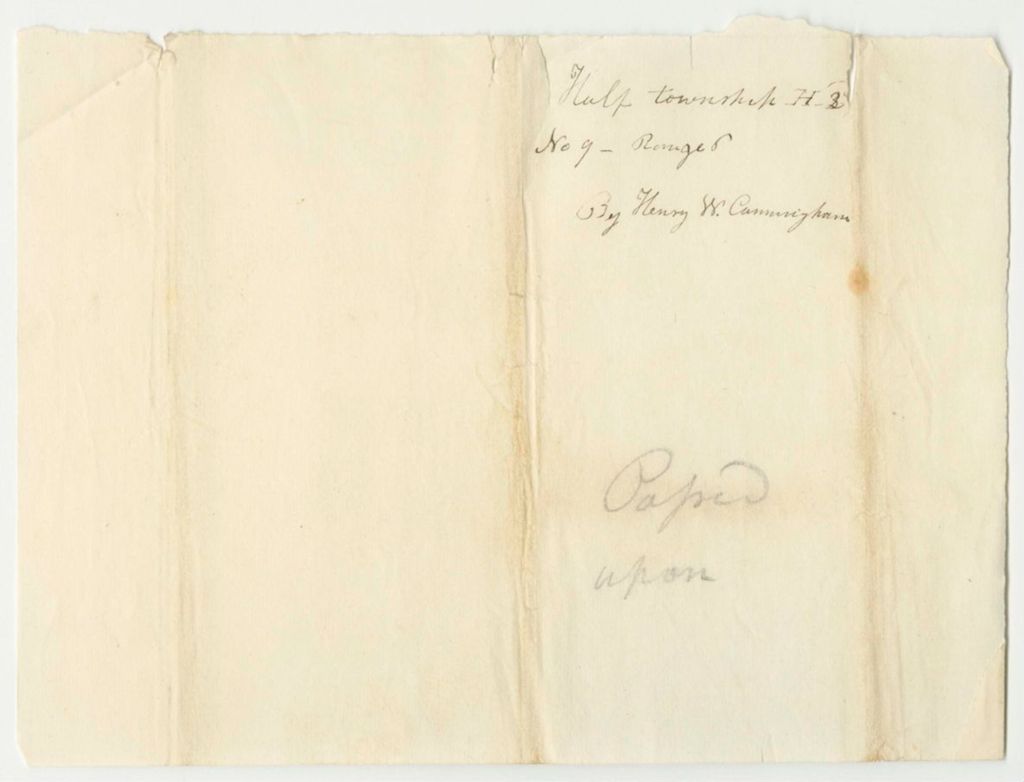 Half township H-2
No 9 - Range 6
By Henry W. Cunningham
Passed
upon